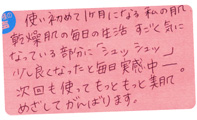 使い初めて1ヶ月になる私の肌
乾燥肌の毎日の生活 すごく気に
なっている部分に「シュッ シュッ」
少し良くなったと毎日実感中ー。
次回も使って もっともっと美肌
めざしてがんばります。